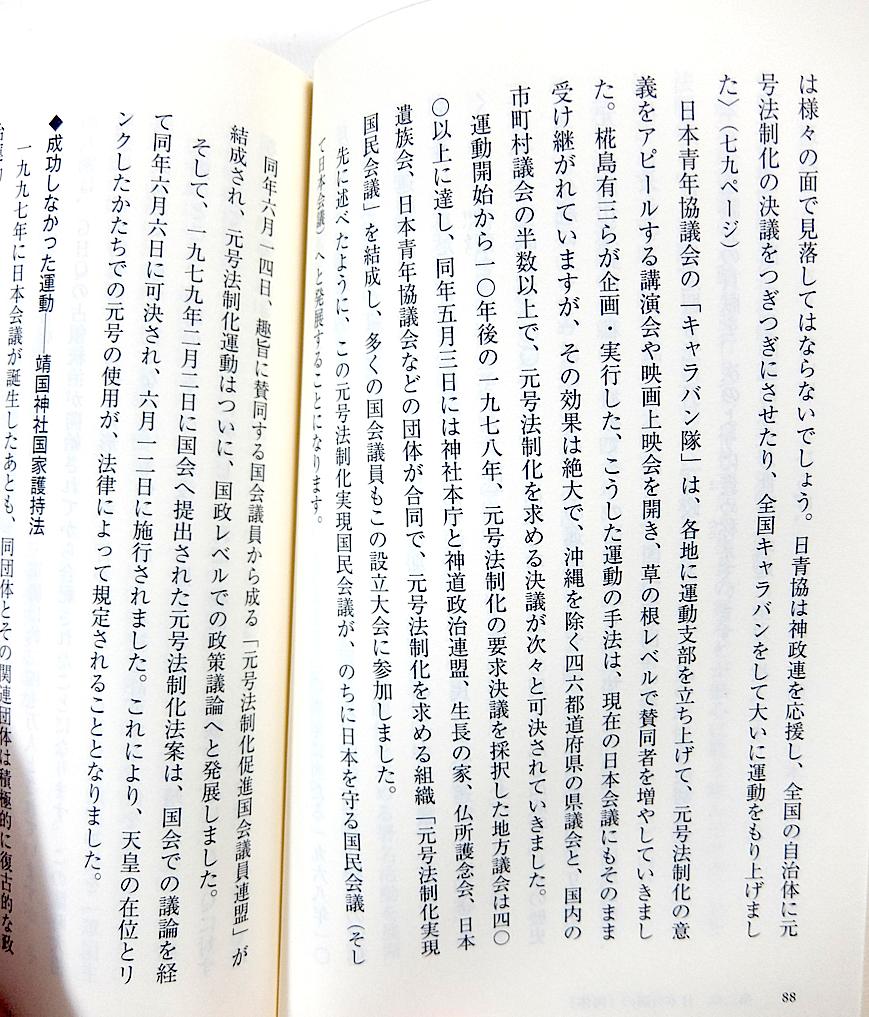 は様々の面で見落してはならないでしょう。日青協は神政連を応援し、全国の自治体に元
号法制化の決議をつぎつぎにさせたり、全国キャラバンをして大いに運動をもり上げまし
た〉（七九ページ）
日本青年協議会の「キャラバン隊」は、各地に運動支部を立ち上げて、元号法制化の意
義をアピールする講演会や映画上映会を開き、草の根レベルで賛同者を増やしていきまし
た。椛島有三らが企画・実行した、こうした運動の手法は、現在の日本会議にもそのまま
受け継がれていますが、その効果は絶大で、沖縄を除く四六都道府県の県議会と、国内の
市町村議会の半数以上で、元号法制化を求める決議が次々と可決されていきました。
運動開始から一〇年後の一九七八年、元号法制化の要求決議を採択した地方議会は四〇
〇以上に達し、同年五月三日には神社本庁と神道政治連盟、生長の家、仏所護念会、日本
遺族会、日本青年協議会などの団体が合同で、元号法制化を求める組織「元号法制化実現
国民会議」を結成し、多くの国会議員もこの設立大会に参加しました。
先に述べたように、この元号法制化実現国民会議が、のちに日本を守る国民会議（そし
て日本会議）へと発展することになります。
88
同年六月一四日、趣旨に賛同する国会議員から成る「元号法制化促進国会議員連盟」が
結成され、元号法制化運動はついに、国政レベルでの政策議論へと発展しました。
そして、一九七九年二月二日に国会へ提出された元号法制化法案は、国会での議論を経
て同年六月六日に可決され、六月一二日に施行されました。これにより、天皇の在位とリ
ンクしたかたちでの元号の使用が、法律によって規定されることとなりました。
◆成功しなかった運動──靖国神社国家護持法
一九九七年に日本会議が誕生したあとも、同団体とその関連団体は積極的に復古的な政